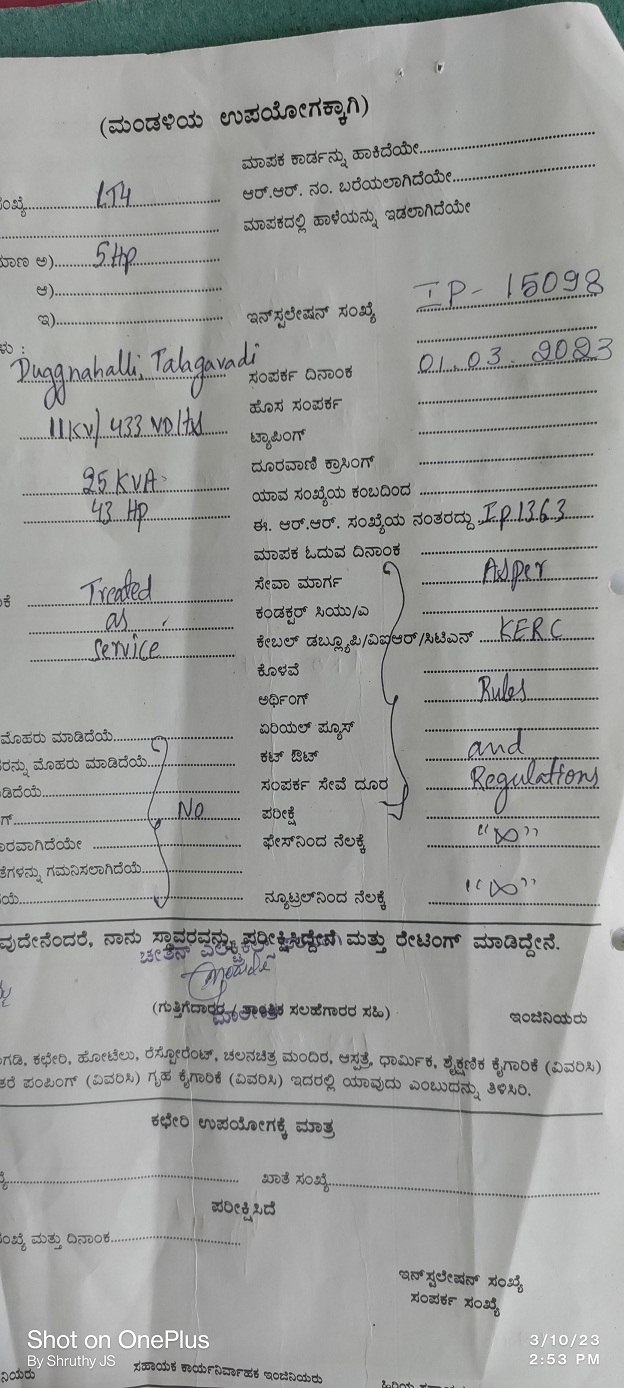 (ಮಂಡಳಿಯ ಉಪಯೋಗಕ್ಕಾಗಿ)
ಮಾಪಕ ಕಾರ್ಡನ್ನು ಹಾಕಿದೆಯೇ
ಂಖ್ಯೆ LT4 ಆರ್.ಆರ್. ನಂ. ಬರೆಯಲಾಗಿದೆಯೇ
ಮಾಪಕದಲ್ಲಿ ಹಾಳೆಯನ್ನು ಇಡಲಾಗಿದೆಯೇ
ಮಾಣ ಅ) 5 Hp
ಆ)
ಇ) ಇನ್‌ಸ್ಟಲೇಷನ್ ಸಂಖ್ಯೆ IP-15098
ಳು :
Duggnahalli, Talagavadi ಸಂಪರ್ಕ ದಿನಾಂಕ 01.03.2023
ಹೊಸ ಸಂಪರ್ಕ
11KV/433 Volts ಟ್ಯಾಪಿಂಗ್
ದೂರವಾಣಿ ಕ್ರಾಸಿಂಗ್
25 KVA ಯಾವ ಸಂಖ್ಯೆಯ ಕಂಬದಿಂದ
43 Hp ಈ. ಆರ್.ಆರ್. ಸಂಖ್ಯೆಯ ನಂತರದ್ದು I.P.1363
ಮಾಪಕ ಓದುವ ದಿನಾಂಕ
ಕೆ Treated ಸೇವಾ ಮಾರ್ಗ Asper
as ಕಂಡಕ್ಟರ್ ಸಿಯು/ಎ
Service ಕೇಬಲ್ ಡಬ್ಲ್ಯೂಪಿ/ವಿಐಆರ್/ಸಿಟಿಎಸ್ KERC
ಕೊಳವೆ
ಅರ್ಥಿಂಗ್ Rules
ಮೊಹರು ಮಾಡಿದೆಯೆ ಏರಿಯಲ್ ಫ್ಯೂಸ್
ರನ್ನು ಮೊಹರು ಮಾಡಿದೆಯೆ ಕಟ್ ಔಟ್ and
ಡಿದೆಯೆ ಸಂಪರ್ಕ ಸೇವೆ ದೂರ Regulations
ಗ್ No ಪರೀಕ್ಷೆ
ಾರವಾಗಿದೆಯೇ ಫೇಸ್‌ನಿಂದ ನೆಲಕ್ಕೆ "∞"
ತೆಗಳನ್ನು ಗಮನಿಸಲಾಗಿದೆಯೆ
ಯೆ ನ್ಯೂಟ್ರಲ್‌ನಿಂದ ನೆಲಕ್ಕೆ "∞"
ವುದೇನೆಂದರೆ, ನಾನು ಸ್ಥಾವರವನ್ನು ಪರೀಕ್ಷಿಸಿದ್ದೇನೆ ಮತ್ತು ರೇಟಿಂಗ್ ಮಾಡಿದ್ದೇನೆ.
(ಗುತ್ತಿಗೆದಾರರ / ತಾಂತ್ರಿಕ ಸಲಹೆಗಾರರ ಸಹಿ) ಇಂಜಿನಿಯರು
ಗಡಿ, ಕಛೇರಿ, ಹೋಟೆಲು, ರೆಸ್ಟೋರೆಂಟ್, ಚಲನಚಿತ್ರ ಮಂದಿರ, ಆಸ್ಪತ್ರೆ, ಧಾರ್ಮಿಕ, ಶೈಕ್ಷಣಿಕ ಕೈಗಾರಿಕೆ (ವಿವರಿಸಿ)
ತರೆ ಪಂಪಿಂಗ್ (ವಿವರಿಸಿ) ಗೃಹ ಕೈಗಾರಿಕೆ (ವಿವರಿಸಿ) ಇದರಲ್ಲಿ ಯಾವುದು ಎಂಬುದನ್ನು ತಿಳಿಸಿರಿ.
ಕಛೇರಿ ಉಪಯೋಗಕ್ಕೆ ಮಾತ್ರ
ಖಾತೆ ಸಂಖ್ಯೆ
ಪರೀಕ್ಷಿಸಿದೆ
ಂಖ್ಯೆ ಮತ್ತು ದಿನಾಂಕ
ಇನ್‌ಸ್ಟಲೇಷನ್ ಸಂಖ್ಯೆ
ಸಂಪರ್ಕ ಸಂಖ್ಯೆ
Shot on OnePlus
By Shruthy JS
3/10/23
2:53 PM
ನಿಯರು ಸಹಾಯಕ ಕಾರ್ಯನಿರ್ವಾಹಕ ಇಂಜಿನಿಯರು